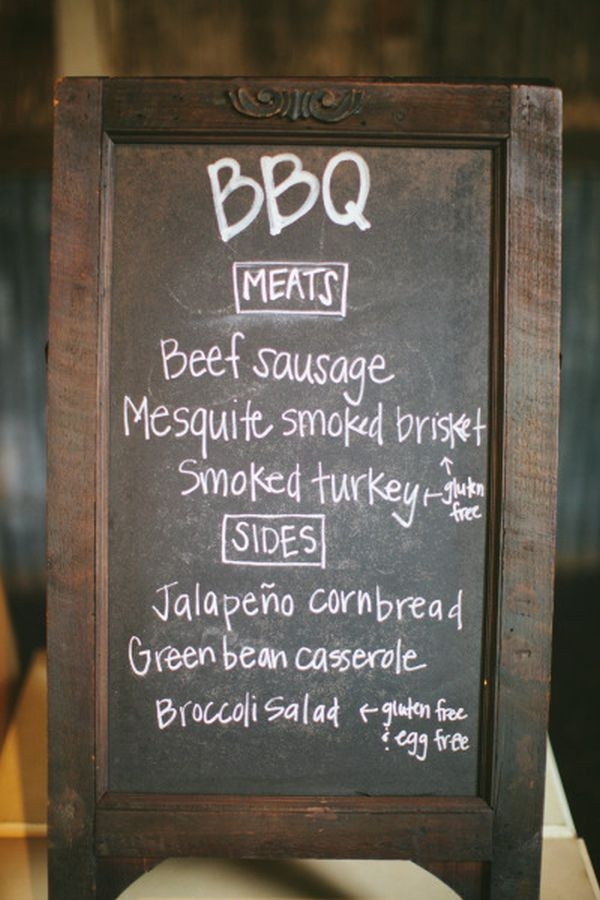 BBQ
MEATS
Beef sausage
Mesquite smoked brisket
Smoked turkey ← gluten free
SIDES
Jalapeño cornbread
Green bean casserole
Broccoli Salad ← gluten free
& egg free